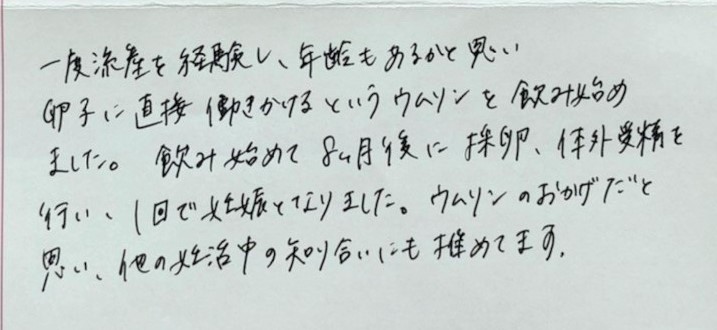 一度流産を経験し、年齢もあるかと思い
卵子に直接働きかけるというウムリンを飲み始め
ました。飲み始めて8ヶ月後に採卵、体外受精を
行い、1回で妊娠となりました。ウムリンのおかげだと
思い、他の妊活中の知り合いにも推めてます。